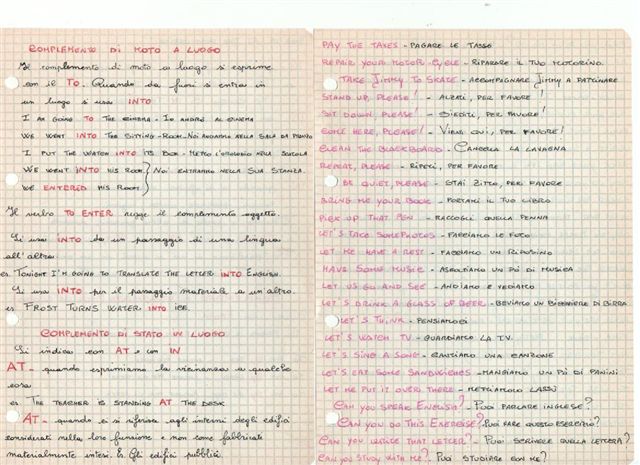 COMPLEMENTO DI MOTO A LUOGO
Il complemento di moto a luogo si esprime
con il TO. Quando da fuori si entra in
un luogo si usa INTO
I AM GOING TO THE CINEMA - IO ANDRÒ AL CINEMA
WE WENT INTO THE SITTING-ROOM - NOI ANDAMMO NELLA SALA DA PRANZO
I PUT THE WATCH INTO ITS BOX - METTO L'OROLOGIO NELLA SCATOLA
WE WENT INTO HIS ROOM } NOI ENTRAMMO NELLA SUA STANZA.
WE ENTERED HIS ROOM
Il verbo TO ENTER regge il complemento oggetto.
Si usa INTO da un passaggio di una lingua
all'altra.
es. TONIGHT I'M GOING TO TRANSLATE THE LETTER INTO ENGLISH.
Si usa INTO per il passaggio materiale a un'altro.
es. FROST TURNS WATER INTO ICE.
COMPLEMENTO DI STATO IN LUOGO
Si indica con AT e con IN
AT - quando esprimiamo la vicinanza a qualche
cosa
es. THE TEACHER IS STANDING AT THE DESK
AT - quando ci si riferisce agli interni degli edifici
considerati nella loro funzione e non come fabbricati
materialmente intesi. Es. Gli edifici pubblici
PAY THE TAXES - PAGARE LE TASSE
REPAIR YOUR MOTOR-CYCLE - RIPARARE IL TUO MOTORINO.
TAKE JIMMY TO SKATE - ACCOMPAGNARE JIMMY A PATTINARE
STAND UP, PLEASE! - ALZATI, PER FAVORE!
SIT DOWN, PLEASE! - SIEDITI, PER FAVORE!
COME HERE, PLEASE! - VIENI QUI, PER FAVORE!
CLEAN THE BLACKBOARD - CANCELLA LA LAVAGNA
REPEAT, PLEASE - RIPETI, PER FAVORE
BE QUIET, PLEASE - STAI ZITTO, PER FAVORE
BRING ME YOUR BOOK - PORTAMI IL TUO LIBRO
PICK UP THAT PEN - RACCOGLI QUELLA PENNA
LET'S TAKE SOME PHOTOS - FACCIAMO LE FOTO
LET ME HAVE A REST - FACCIAMO UN RIPOSINO
HAVE SOME MUSIC - ASCOLTIAMO UN PÒ DI MUSICA
LET US GO AND SEE - ANDIAMO E VEDIAMO
LET'S DRINK A GLASS OF BEER - BEVIAMO UN BICCHIERE DI BIRRA
LET'S THINK - PENSIAMOCI
LET'S WATCH TV - GUARDIAMO LA T.V.
LET'S SING A SONG - CANTIAMO UNA CANZONE
LET'S EAT SOME SANDWICHES - MANGIAMO UN PÒ DI PANINI
LET ME PUT IT OVER THERE - METTIAMOLO LASSÙ
CAN YOU SPEAK ENGLISH? - PUOI PARLARE INGLESE?
CAN YOU DO THIS EXERCISE? PUOI FARE QUESTO ESERCIZIO?
CAN YOU WRITE THAT LETTER? - PUOI SCRIVERE QUELLA LETTERA?
CAN YOU STUDY WITH ME? PUOI STUDIARE CON ME?